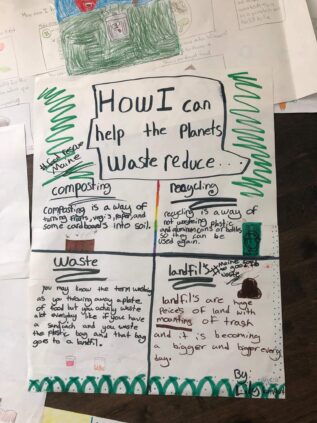 HowI can
help the Planets
Waste reduce...
composting
composting is a way of
turning fruits, veg's, paper, and
some cardboards into soil.
recycling
recycling is a way of
not wasteing plastic
and aluminum cans or bottles
so they can be
used again.
Waste
you may know the term wasting
as you throwing away a plate
of food but you actily waste
be everyday like if your have
a sandwich and you waste
the plastic bag and that bag
goes to a landfil.
landfil's
landfil's are huge
Peices of land with
mounting of trash
and it is becoming
a bigger and bigger every
day.
By: